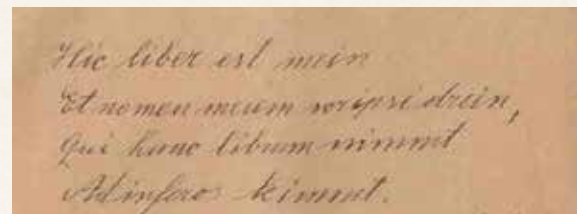 Hic liber est mein
Et nomen meum scripsi drein,
Qui hunc librum nimmt
Ad inferos kimmt.